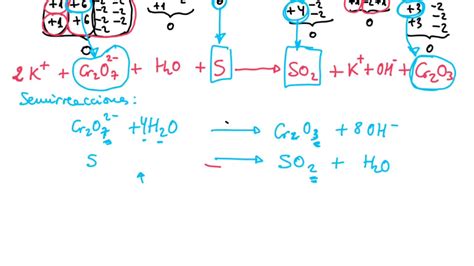 +1 +6 -2 +1 0 +4 -2 +1 -2+1 +3 -2
+1 +6 -2 -2 0 -2 0 +3 -2
0 0 0 -2
0
2K⁺ + Cr₂O₇²⁻ + H₂O + S ⟶ SO₂ + K⁺ + OH⁻ + Cr₂O₃
Semirreacciones:
Cr₂O₇²⁻ + 4H₂O ⟶ Cr₂O₃ + 8OH⁻
S ⟶ SO₂ + H₂O